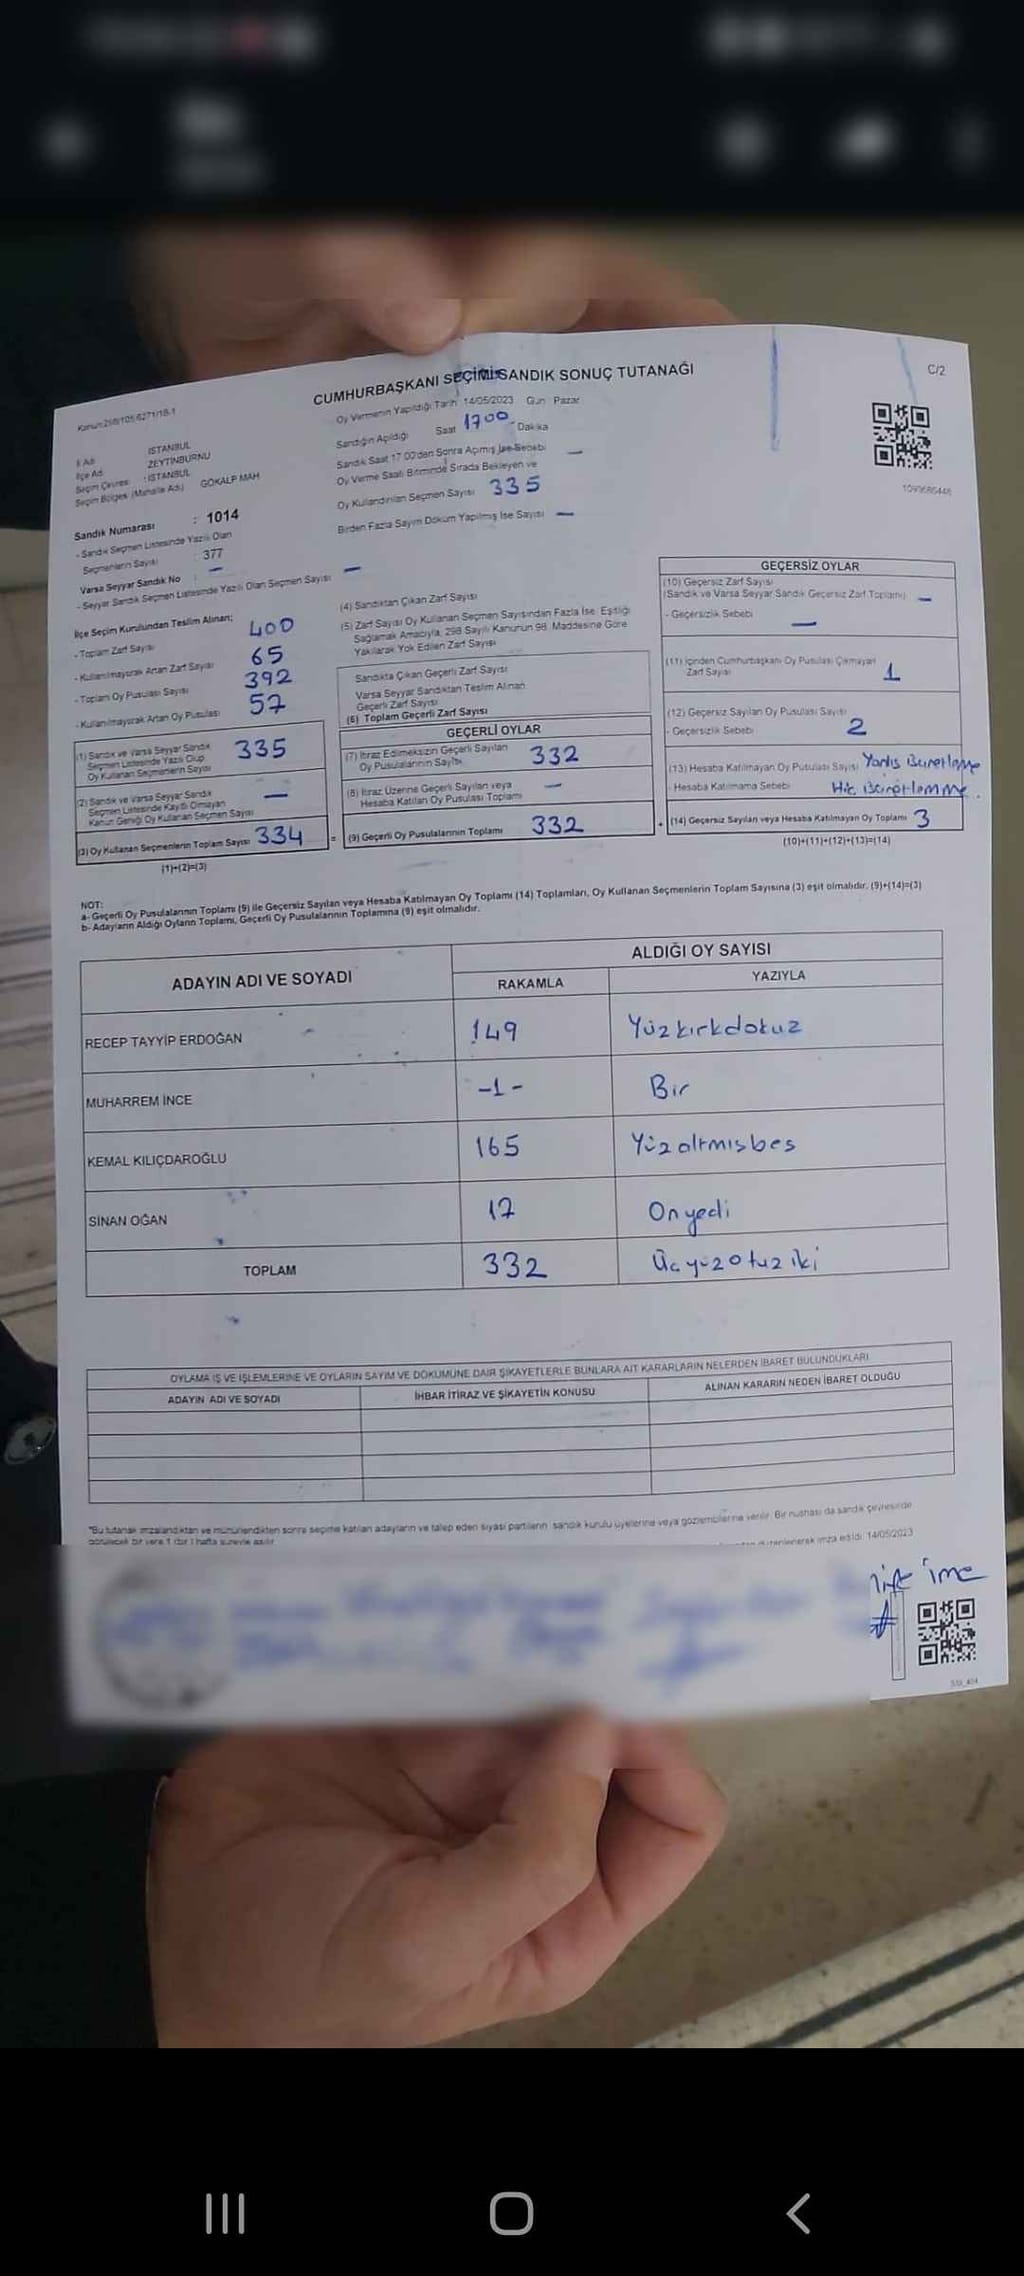 CUMHURBAŞKANI SEÇİMİ SANDIK SONUÇ TUTANAĞI
C/2
Kanun:298/105,6271/18-1
Oy Vermenin Yapıldığı Tarih 14/05/2023 Gün Pazar
Sandığın Açıldığı Saat 1700 Dakika
Sandık Saat 17.00'den Sonra Açımış İse Sebebi —
Oy Verme Saati Bitiminde Sırada Bekleyen ve
Oy Kullandırılan Seçmen Sayısı 335
Birden Fazla Sayım Döküm Yapılmış İse Sayısı —
İl Adı : İSTANBUL
İlçe Adı ZEYTİNBURNU
Seçim Çevresi : İSTANBUL
Seçim Bölgesi (Mahalle Adı) GÖKALP MAH
1090686448
Sandık Numarası : 1014
- Sandık Seçmen Listesinde Yazılı Olan
Seçmenlerin Sayısı : 377
Varsa Seyyar Sandık No : —
- Seyyar Sandık Seçmen Listesinde Yazılı Olan Seçmen Sayısı —
İlçe Seçim Kurulundan Teslim Alınan;
- Toplam Zarf Sayısı 400
- Kullanılmayarak Artan Zarf Sayısı 65
- Toplam Oy Pusulası Sayısı 392
- Kullanılmayarak Artan Oy Pusulası 57
(1) Sandık ve Varsa Seyyar Sandık
Seçmen Listesinde Yazılı Olup
Oy Kullanan Seçmenlerin Sayısı 335
(2) Sandık ve Varsa Seyyar Sandık
Seçmen Listesinde Kayıtlı Olmayan
Kanun Gereği Oy Kullanan Seçmen Sayısı —
(3) Oy Kullanan Seçmenlerin Toplam Sayısı 334 =
(1)+(2)=(3)
(4) Sandıktan Çıkan Zarf Sayısı
(5) Zarf Sayısı Oy Kullanan Seçmen Sayısından Fazla İse; Eşitliği
Sağlamak Amacıyla, 298 Sayılı Kanunun 98. Maddesine Göre
Yakılarak Yok Edilen Zarf Sayısı
Sandıkta Çıkan Geçerli Zarf Sayısı
Varsa Seyyar Sandıktan Teslim Alınan
Geçerli Zarf Sayısı
(6) Toplam Geçerli Zarf Sayısı
GEÇERLİ OYLAR
(7) İtiraz Edilmeksizin Geçerli Sayılan
Oy Pusulalarının Sayısı 332
(8) İtiraz Üzerine Geçerli Sayılan veya
Hesaba Katılan Oy Pusulası Toplamı —
(9) Geçerli Oy Pusulalarının Toplamı 332
GEÇERSİZ OYLAR
(10) Geçersiz Zarf Sayısı
(Sandık ve Varsa Seyyar Sandık Geçersiz Zarf Toplamı) —
- Geçersizlik Sebebi —
(11) İçinden Cumhurbaşkanı Oy Pusulası Çıkmayan
Zarf Sayısı 1
(12) Geçersiz Sayılan Oy Pusulası Sayısı 2
- Geçersizlik Sebebi
(13) Hesaba Katılmayan Oy Pusulası Sayısı Yanlış İşaretleme
- Hesaba Katılmama Sebebi Hiç İşaretlemme.
+ (14) Geçersiz Sayılan veya Hesaba Katılmayan Oy Toplamı 3
(10)+(11)+(12)+(13)=(14)
NOT:
a- Geçerli Oy Pusulalarının Toplamı (9) ile Geçersiz Sayılan veya Hesaba Katılmayan Oy Toplamı (14) Toplamları, Oy Kullanan Seçmenlerin Toplam Sayısına (3) eşit olmalıdır. (9)+(14)=(3)
b- Adayların Aldığı Oyların Toplamı, Geçerli Oy Pusulalarının Toplamına (9) eşit olmalıdır.
ADAYIN ADI VE SOYADI
ALDIĞI OY SAYISI
RAKAMLA YAZIYLA
RECEP TAYYİP ERDOĞAN 149 Yüzkırkdokuz
MUHARREM İNCE -1- Bir
KEMAL KILIÇDAROĞLU 165 Yüzaltmışbeş
SİNAN OĞAN 17 Onyedi
TOPLAM 332 Üçyüzotuziki
OYLAMA İŞ VE İŞLEMLERİNE VE OYLARIN SAYIM VE DÖKÜMÜNE DAİR ŞİKAYETLERLE BUNLARA AİT KARARLARIN NELERDEN İBARET BULUNDUKLARI
ADAYIN ADI VE SOYADI İHBAR İTİRAZ VE ŞİKAYETİN KONUSU ALINAN KARARIN NEDEN İBARET OLDUĞU
*Bu tutanak imzalandıktan ve mühürlendikten sonra seçime katılan adayların ve talep eden siyasi partilerin sandık kurulu üyelerine veya gözlemcilerine verilir. Bir nüshası da sandık çevresinde
görülecek bir yere 1 (bir) hafta süreyle asılır.
düzenlenerek imza edildi. 14/05/2023